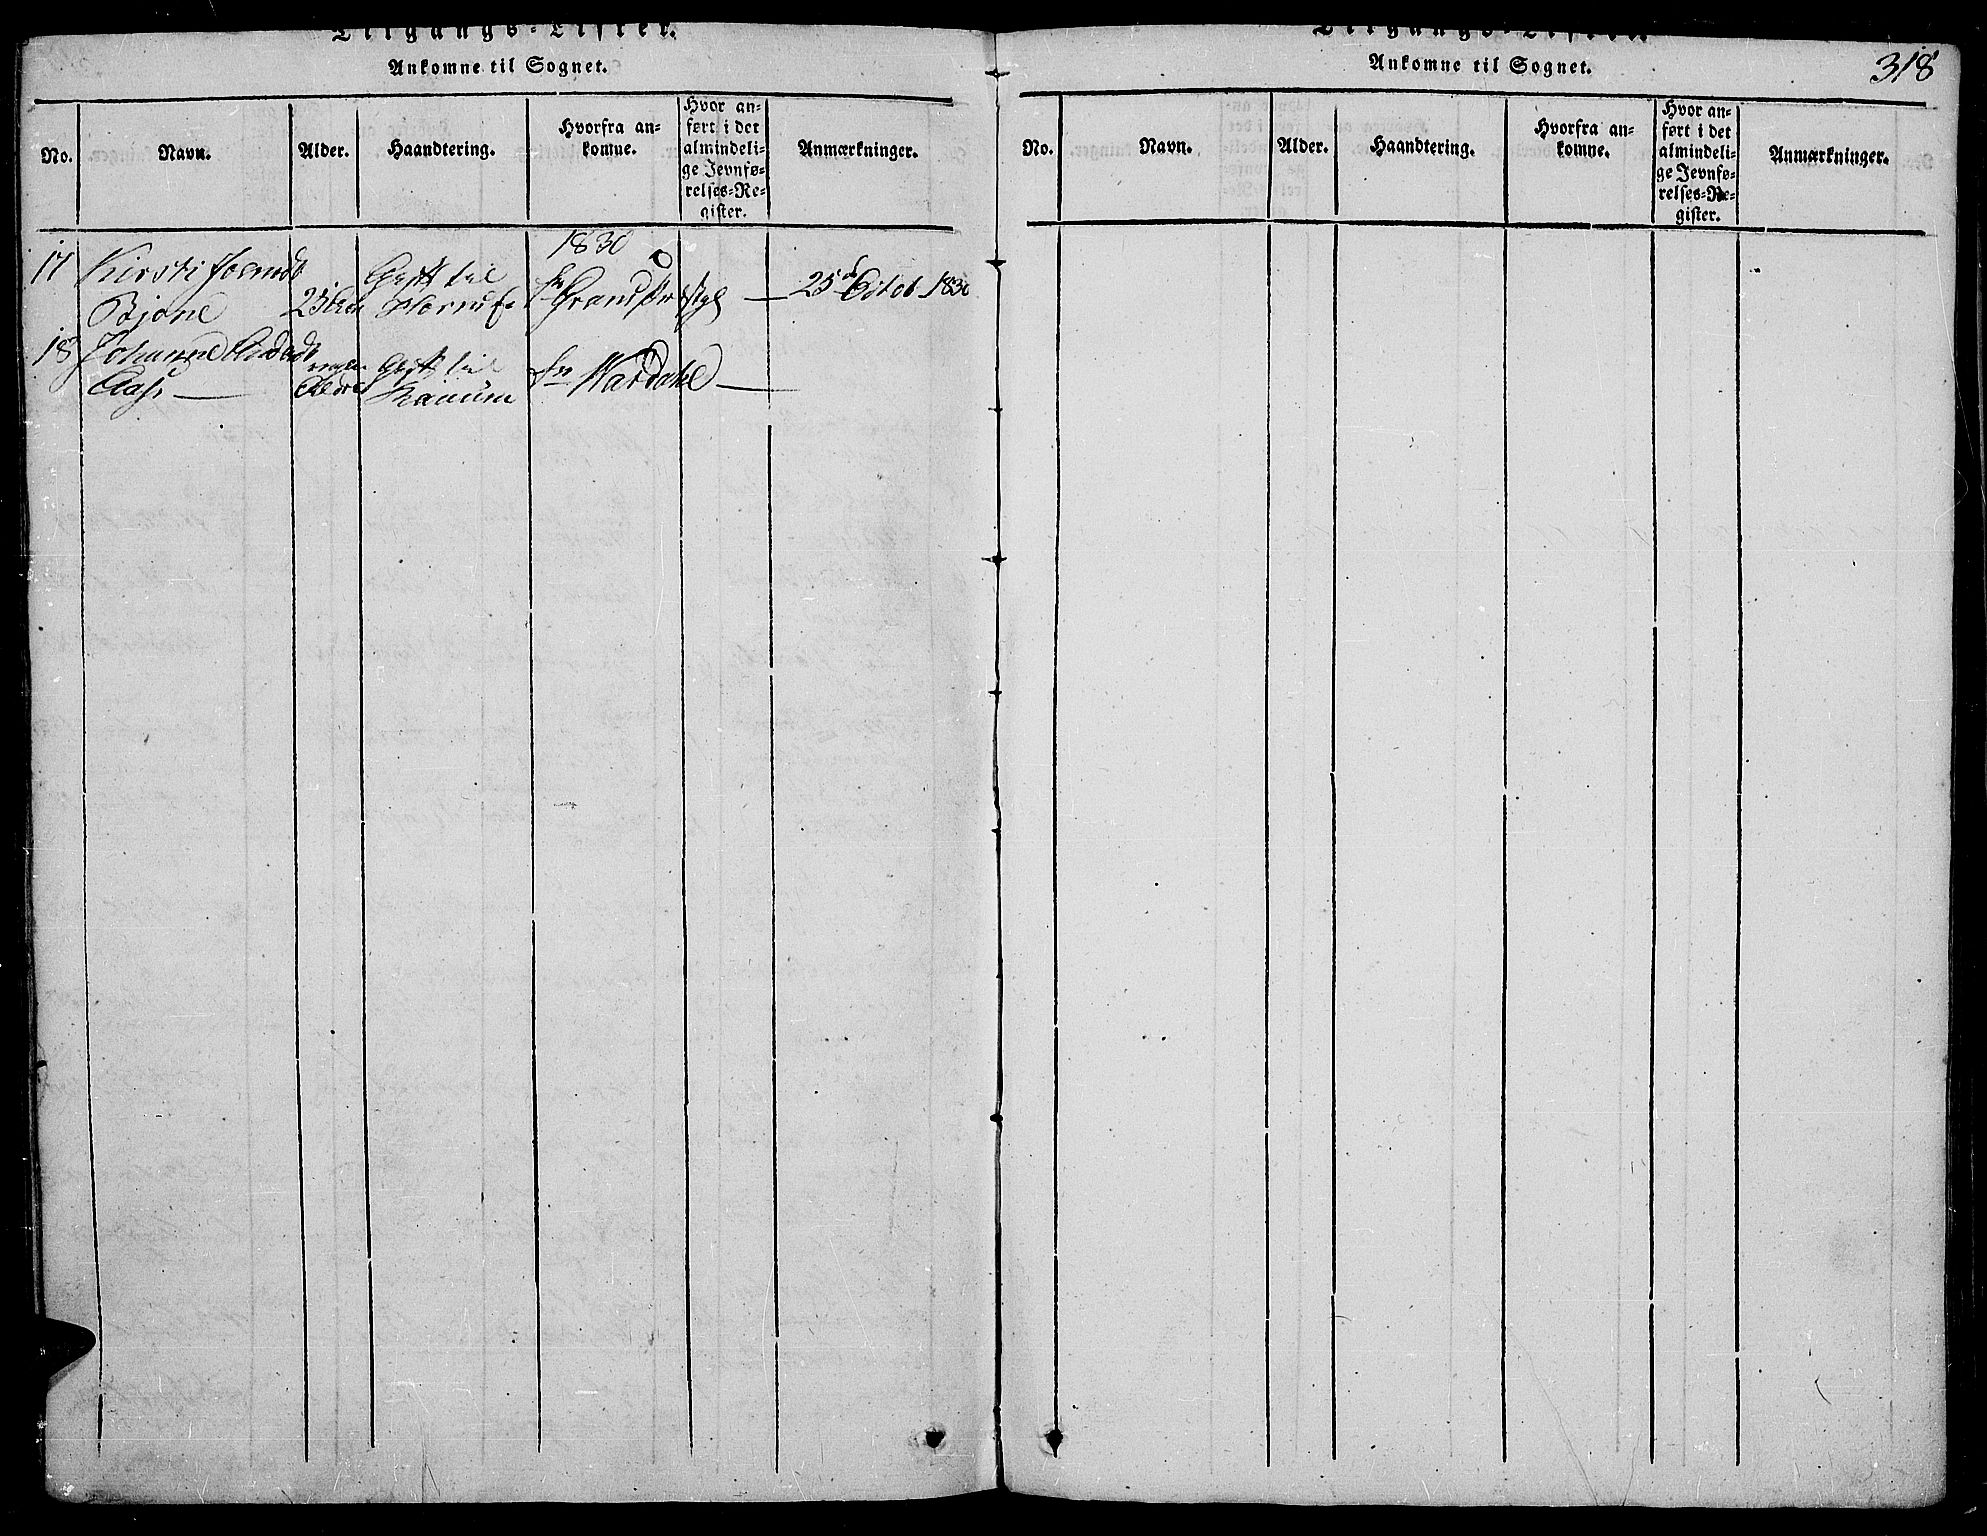 Tilgangs-Lister.
Ankomne til Sognet.
No.
Navn.
Alder.
Haandtering.
Hvorfra an-
komne.
Hvor an-
ført i det
almindeli-
ge Jevnfø-
relses-Re-
gister.
Anmærkninger.
1830
17 Kirsti
Bjone 25 til fra Gran Præstegl — 25d Octob 1830
18 Johanne
til fra Wardahl —
Tilgangs-Lister.
Ankomne til Sognet.
318
No.
Navn.
Alder.
Haandtering.
Hvorfra an-
komne.
Hvor an-
ført i det
almindeli-
ge Jevnfø-
relses-Re-
gister.
Anmærkninger.